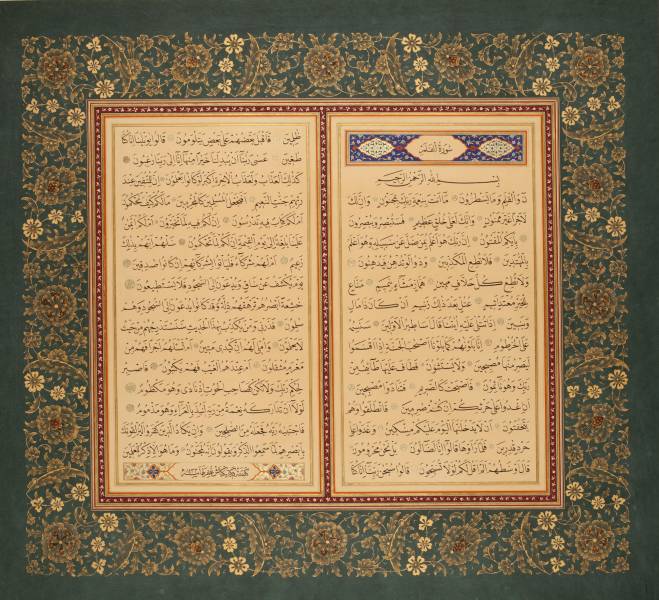 سورة القلم
بسم الله الرحمن الرحيم
ن والقلم وما يسطرون ما أنت بنعمة ربك بمجنون وإن لك
لأجرا غير ممنون وإنك لعلى خلق عظيم فستبصر ويبصرون
بأيكم المفتون إن ربك هو أعلم بمن ضل عن سبيله وهو أعلم
بالمهتدين فلا تطع المكذبين ودوا لو تدهن فيدهنون
ولا تطع كل حلاف مهين هماز مشاء بنميم مناع
للخير معتد أثيم عتل بعد ذلك زنيم أن كان ذا مال
وبنين إذا تتلى عليه آياتنا قال أساطير الأولين سنسمه
على الخرطوم إنا بلوناهم كما بلونا أصحاب الجنة إذ أقسموا
ليصرمنها مصبحين ولا يستثنون فطاف عليها طائف من
ربك وهم نائمون فأصبحت كالصريم فتنادوا مصبحين
أن اغدوا على حرثكم إن كنتم صارمين فانطلقوا وهم
يتخافتون أن لا يدخلنها اليوم عليكم مسكين وغدوا على
حرد قادرين فلما رأوها قالوا إنا لضالون بل نحن محرومون
قال أوسطهم ألم أقل لكم لولا تسبحون قالوا سبحان ربنا إنا كنا
ظالمين فأقبل بعضهم على بعض يتلاومون قالوا يا ويلنا إنا كنا
طاغين عسى ربنا أن يبدلنا خيرا منها إنا إلى ربنا راغبون
كذلك العذاب ولعذاب الآخرة أكبر لو كانوا يعلمون إن للمتقين عند
ربهم جنات النعيم أفنجعل المسلمين كالمجرمين ما لكم كيف تحكمون
أم لكم كتاب فيه تدرسون إن لكم فيه لما تخيرون أم لكم أيمان
علينا بالغة إلى يوم القيامة إن لكم لما تحكمون سلهم أيهم بذلك
زعيم أم لهم شركاء فليأتوا بشركائهم إن كانوا صادقين
يوم يكشف عن ساق ويدعون إلى السجود فلا يستطيعون
خاشعة أبصارهم ترهقهم ذلة وقد كانوا يدعون إلى السجود وهم
سالمون فذرني ومن يكذب بهذا الحديث سنستدرجهم من حيث
لا يعلمون وأملي لهم إن كيدي متين أم تسألهم أجرا فهم من
مغرم مثقلون أم عندهم الغيب فهم يكتبون فاصبر
لحكم ربك ولا تكن كصاحب الحوت إذ نادى وهو مكظوم
لولا أن تداركه نعمة من ربه لنبذ بالعراء وهو مذموم
فاجتباه ربه فجعله من الصالحين وإن يكاد الذين كفروا ليزلقونك
بأبصارهم لما سمعوا الذكر ويقولون إنه لمجنون وما هو إلا ذكر للعالمين